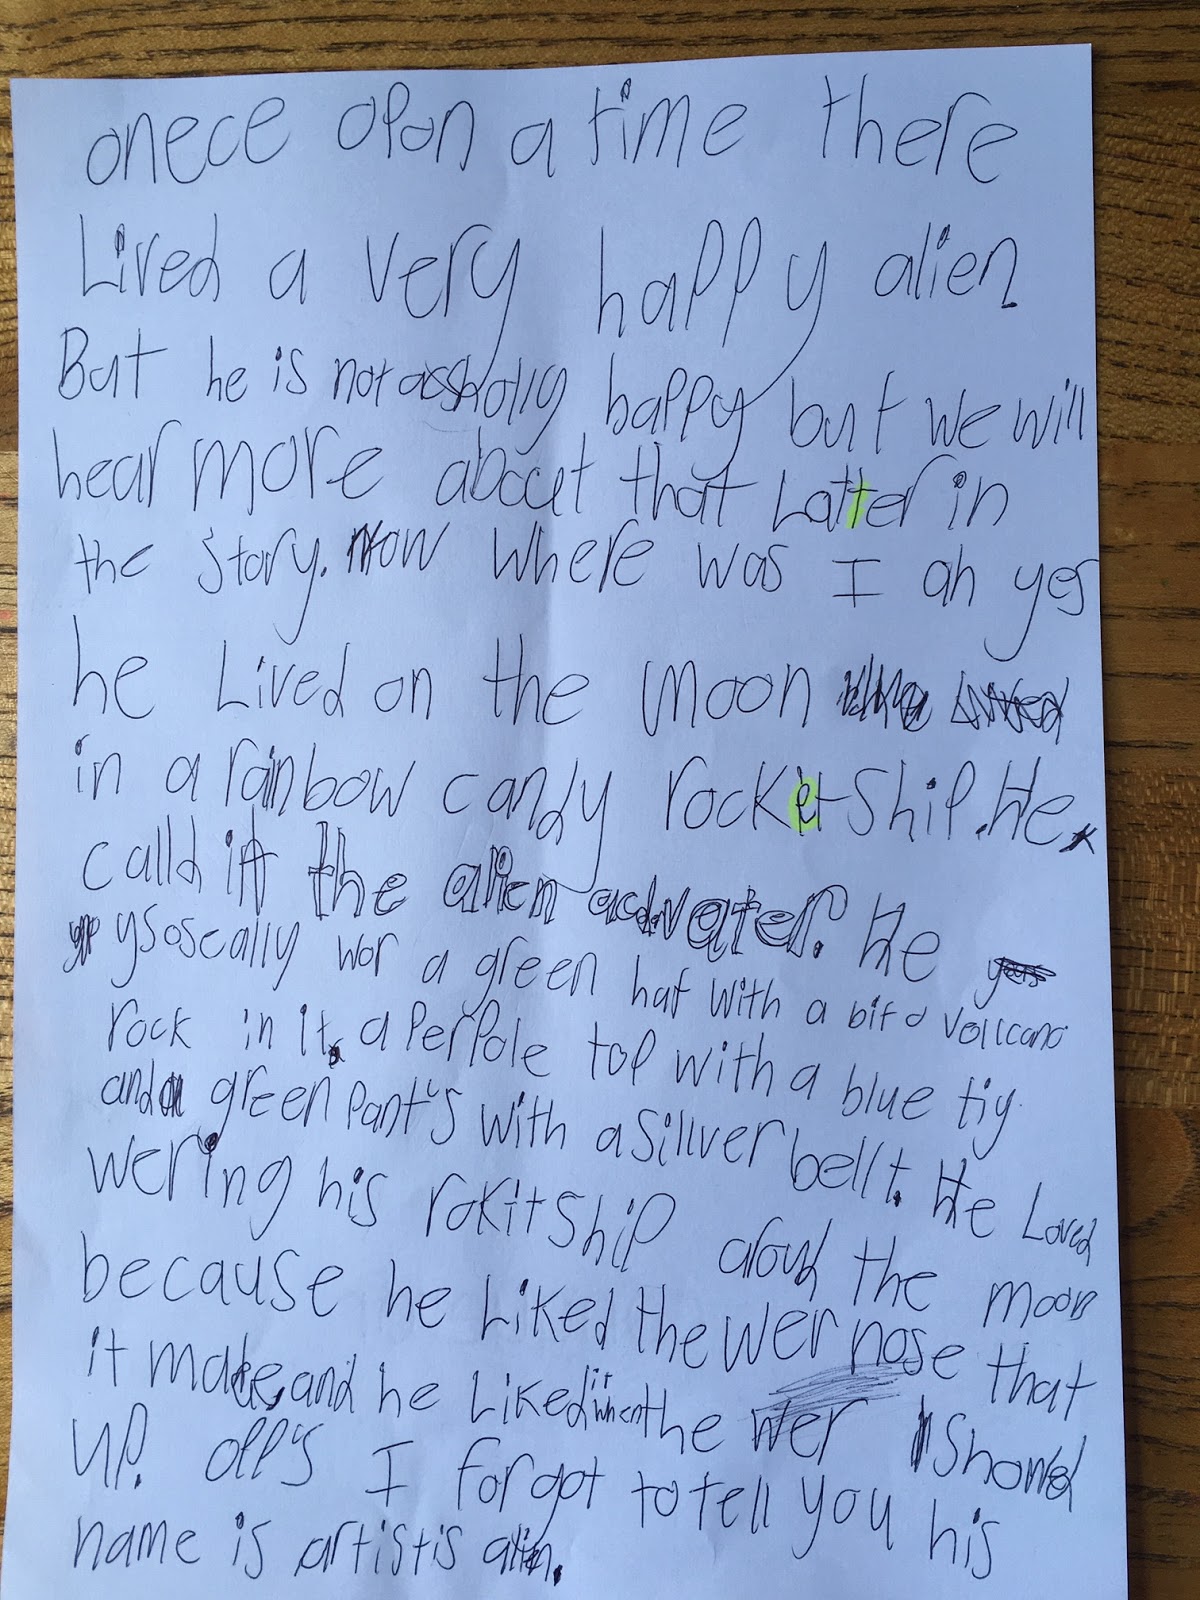 onece opon a time there
Lived a very happy alien
But he is not happy but we will
hear more about that Latter in
the story. Now where was I ah yes
he Lived on the moon
in a rainbow candy rocket ship. He
calld it the alien acdvater. He
ysoseally wor a green hat with a bit o vollcano
rock in it, a perpole top with a blue tiy
and green pant's with a sillver bellt. He Loved
wering his rokit ship aroud the moon
because he Liked the wer nose that
it made, and he Liked it when the wer showed
up. opp's I forgot to tell you his
name is artistis alin.